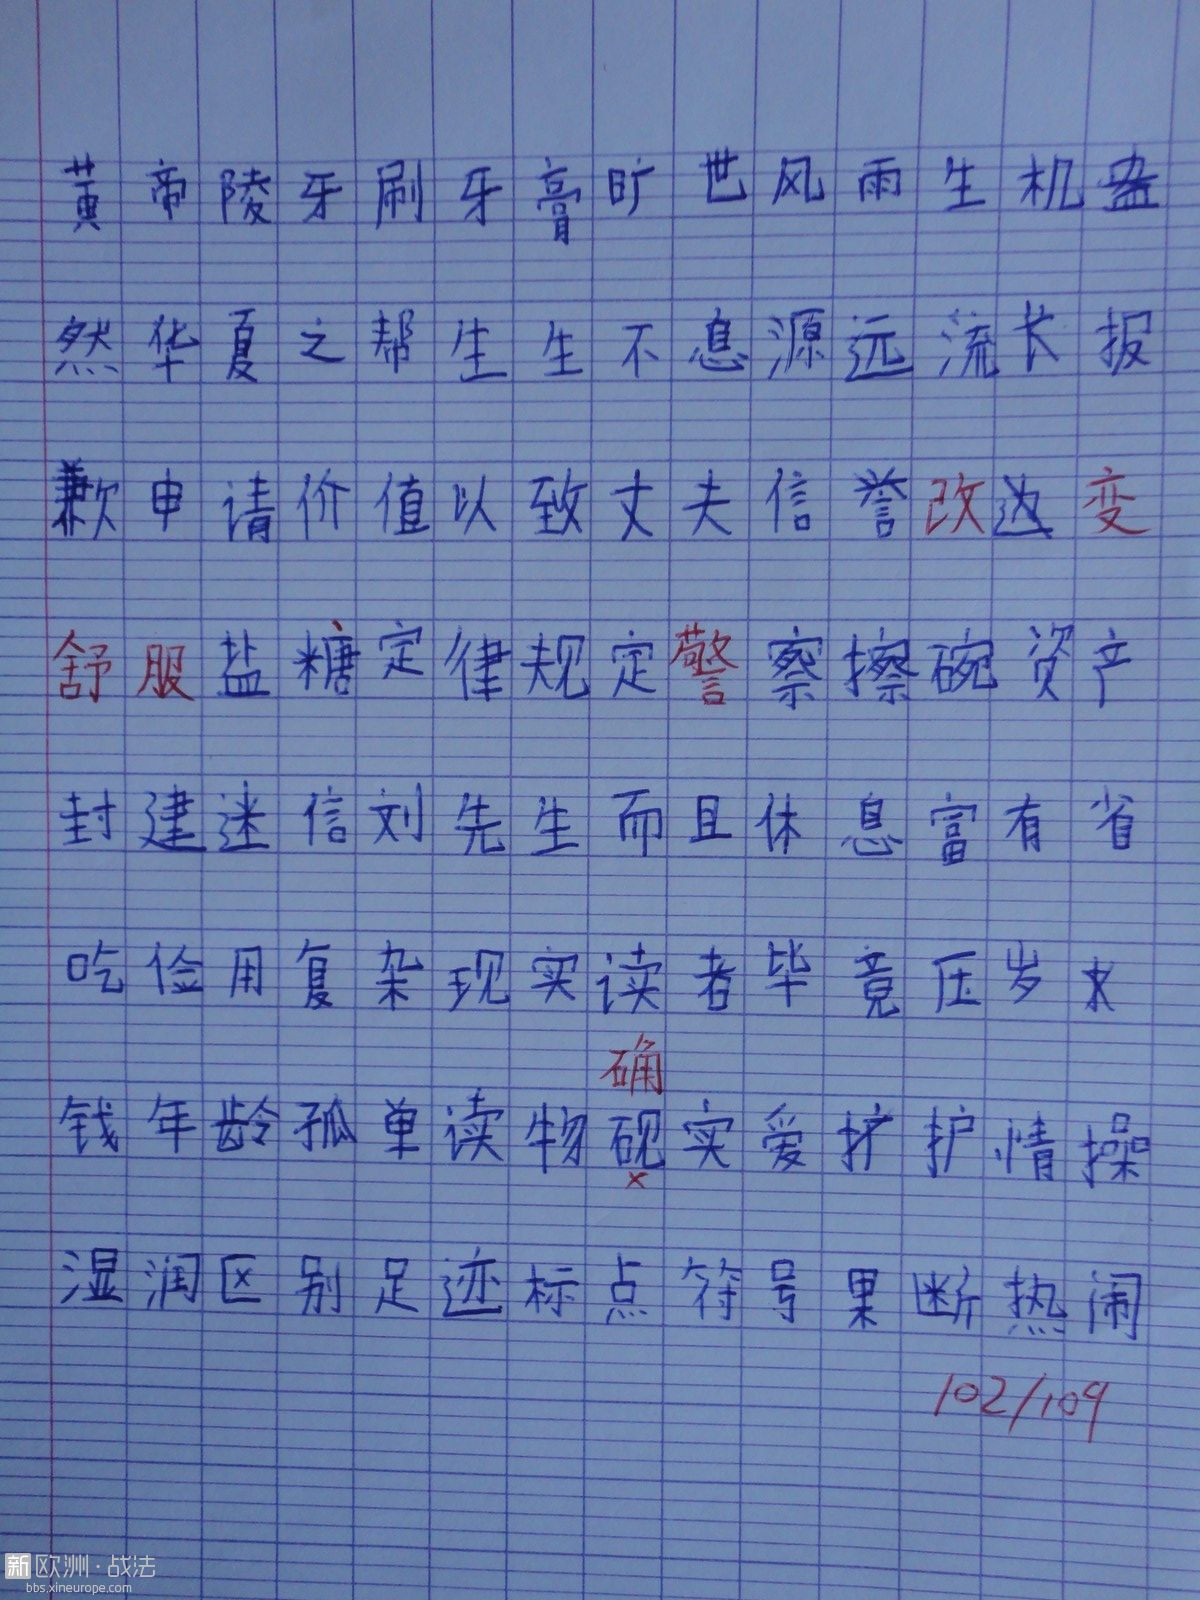 黄帝陵牙刷牙膏旷世风雨生机盎
然华夏之帮生生不息源远流长报
歉申请价值以致丈夫信誉改边变
舒服盐糖定律规定警察擦碗资产
封建迷信刘先生而且休息富有省
吃俭用复杂现实读者毕竟压岁
确
钱年龄孤单读物砚实爱护护情操
×
湿润区别足迹标点符号果断热闹
102/109
新欧洲·战法
bbs.xineurope.com